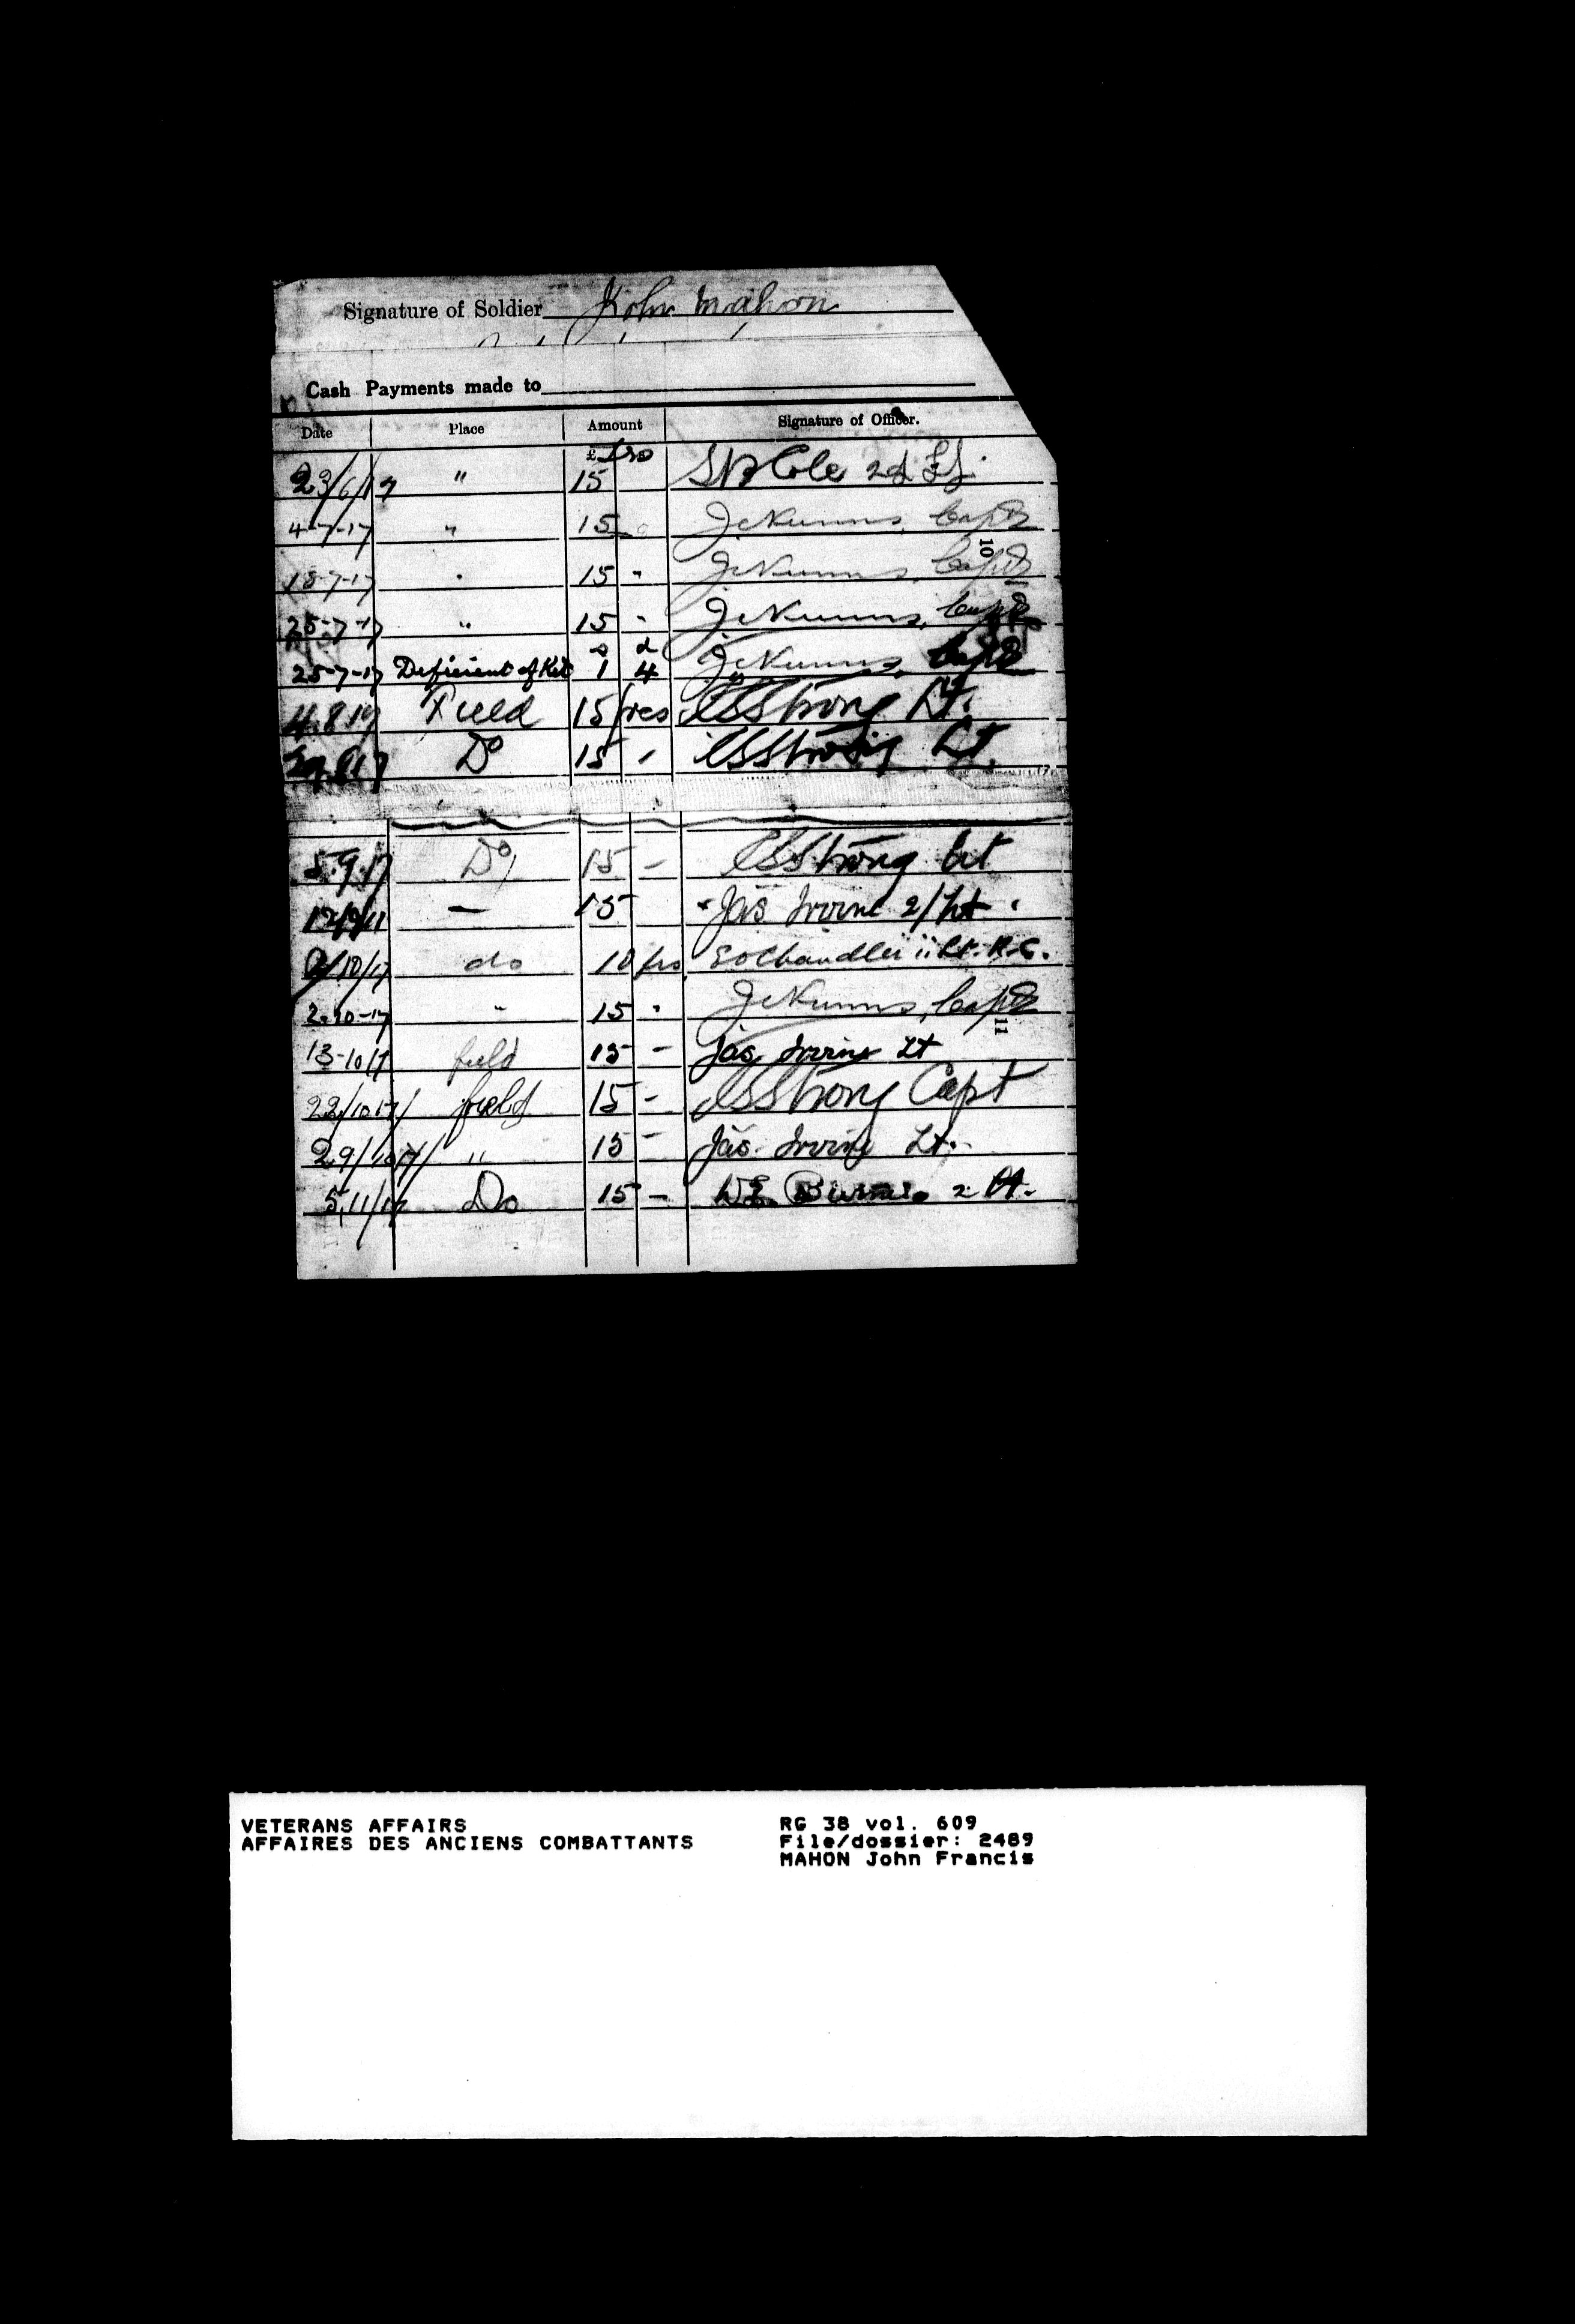 Signature of Soldier John Mahon
Cash Payments made to
Date Place Amount Signature of Officer.
£ frs
23/6/17 " 15 Cole 2d Lt
4-7-17 " 15 Capt
10
18-7-17 " 15 " Capt
25-7-17 " 15 " Capt
s d
25-7-17 Deficient of Kit 1 4 Capt
4.8.17 Field 15 frcs Strong Lt.
Do 15 " Strong Lt
5.9.17 Do 15 - Strong Lt
12/9/17 — 15 Jas Irvine 2/Lt
/10/17 do 10 frs EO Chandler ii Lt. R.C.
2-10-17 " 15 " Capt
11
13-10-17 field 15 - Jas Irvine Lt
22/10/17/ field 15 - Strong Capt
29/10/17/ " 15 - Jas. Irvine Lt.
5/11/17 Do 15 - 2 Lt.
VETERANS AFFAIRS RG 38 vol. 609
AFFAIRES DES ANCIENS COMBATTANTS File/dossier: 2489
MAHON John Francis